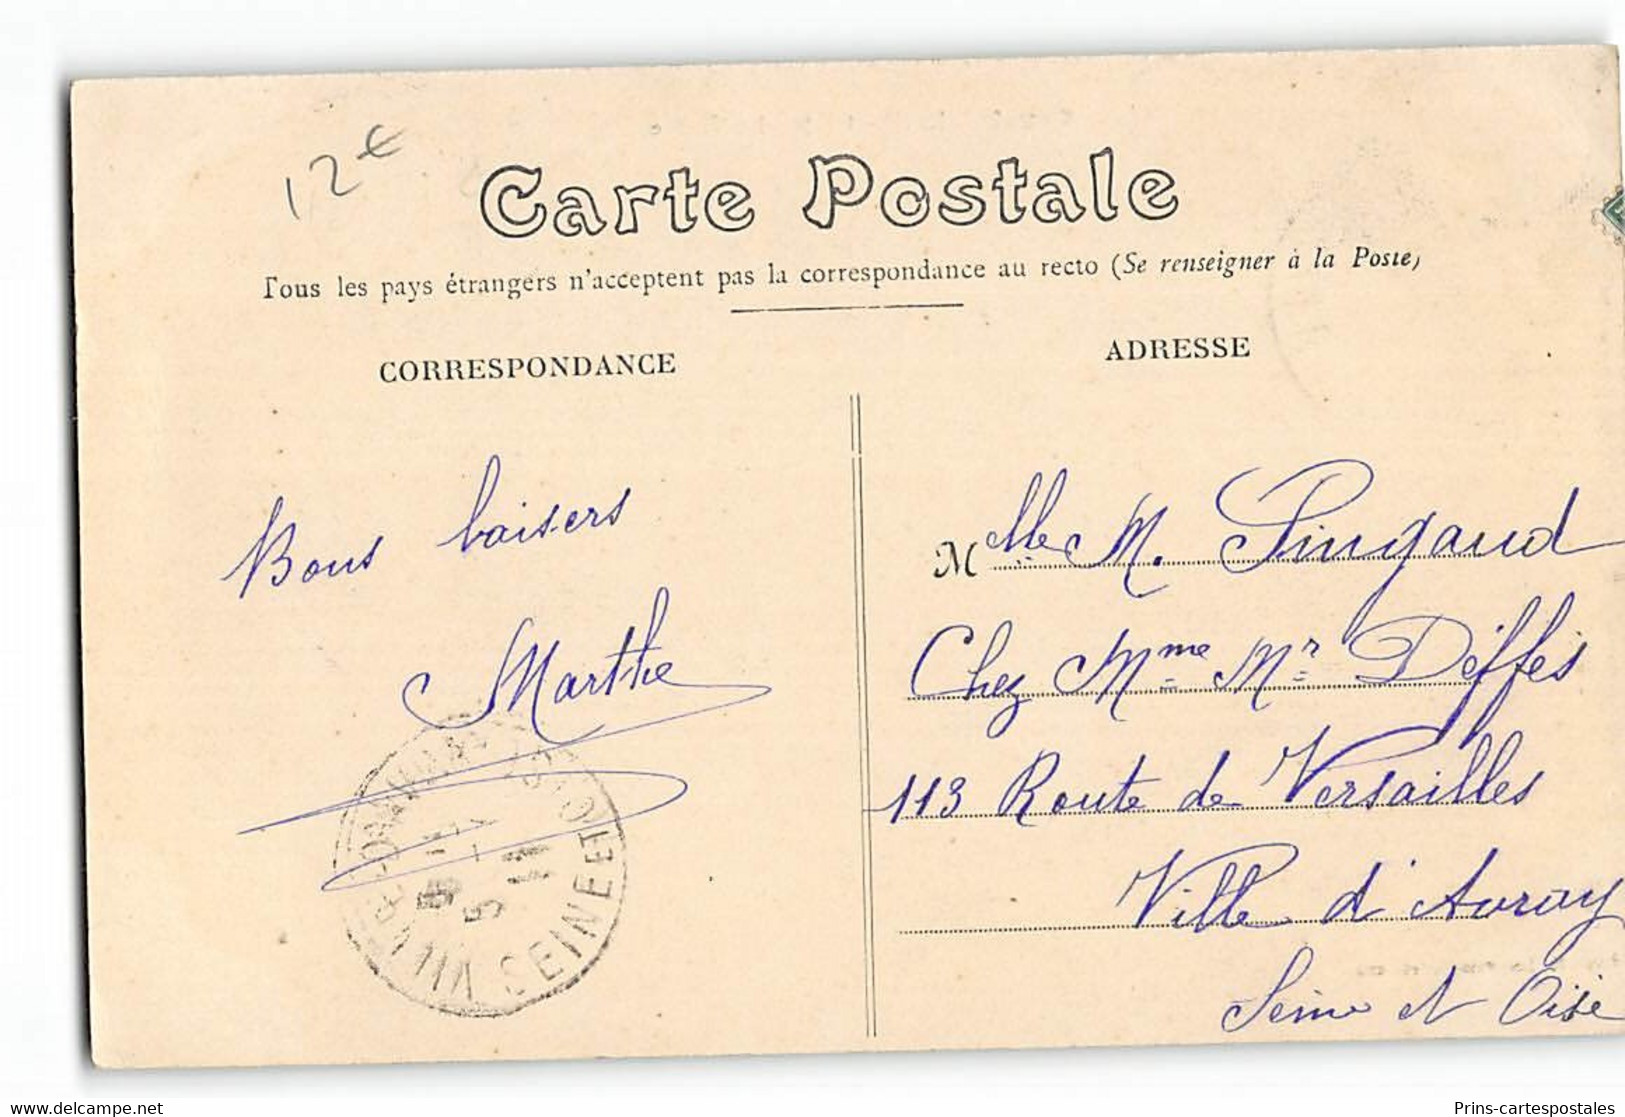 12€
Carte Postale
Tous les pays étrangers n'acceptent pas la correspondance au recto (Se renseigner à la Poste)
CORRESPONDANCE
ADRESSE
Bons baisers
Marthe
Melle M. Pingaud
Chez Mme Mr Déffès
113 Route de Versailles
Ville d'Avray
Seine et Oise
VILLE-D'AVRAY SEINE ET OISE
5 11
www.delcampe.net
Prins-cartespostales